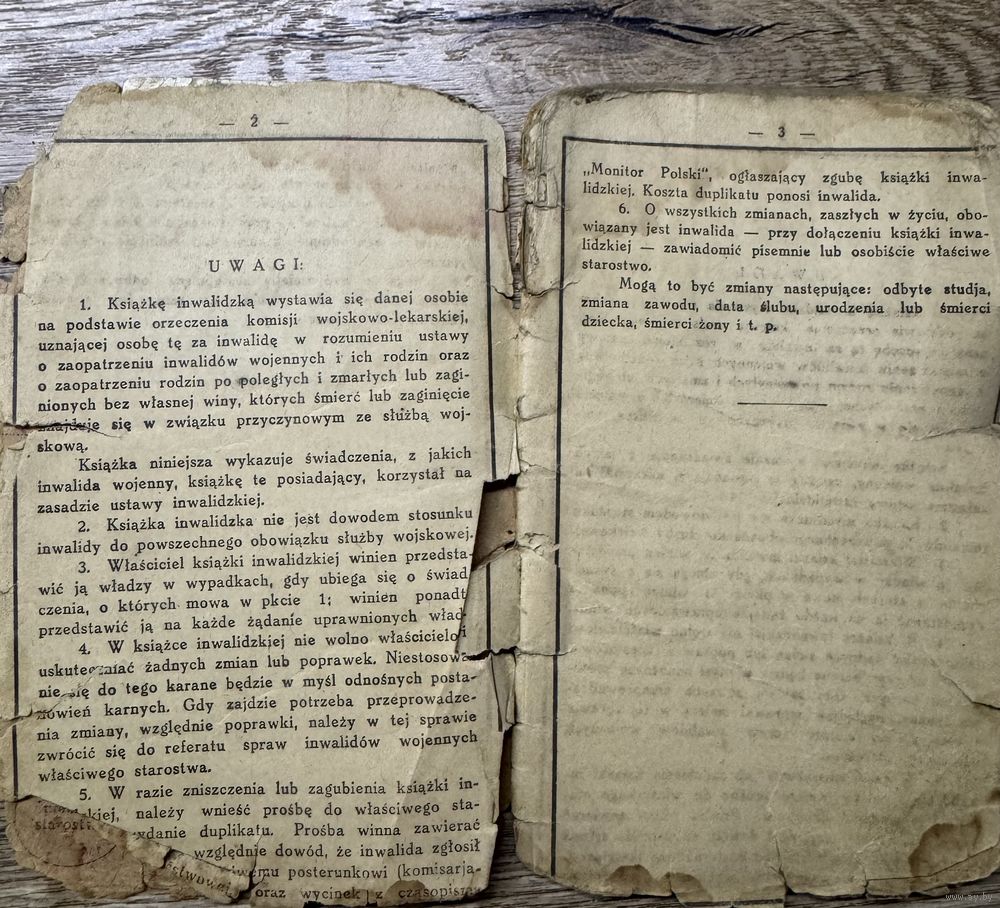 — 2 —
UWAGI:
1. Książkę inwalidzką wystawia się danej osobie
na podstawie orzeczenia komisji wojskowo-lekarskiej,
uznającej osobę tę za inwalidę w rozumieniu ustawy
o zaopatrzeniu inwalidów wojennych i ich rodzin oraz
o zaopatrzeniu rodzin po poległych i zmarłych lub zagi-
nionych bez własnej winy, których śmierć lub zaginięcie
znajduje się w związku przyczynowym ze służbą woj-
skową.
Książka niniejsza wykazuje świadczenia, z jakich
inwalida wojenny, książkę te posiadający, korzystał na
zasadzie ustawy inwalidzkiej.
2. Książka inwalidzka nie jest dowodem stosunku
inwalidy do powszechnego obowiązku służby wojskowej.
3. Właściciel książki inwalidzkiej winien przedsta-
wić ją władzy w wypadkach, gdy ubiega się o świad
czenia, o których mowa w pkcie 1; winien ponadt
przedstawić ją na każde żądanie uprawnionych wład
4. W książce inwalidzkiej nie wolno właścicielo i
uskuteczniać żadnych zmian lub poprawek. Niestosowa
nie się do tego karane będzie w myśl odnośnych posta-
nowień karnych. Gdy zajdzie potrzeba przeprowadze-
nia zmiany, względnie poprawki, należy w tej sprawie
zwrócić się do referatu spraw inwalidów wojennych
właściwego starostwa.
5. W razie zniszczenia lub zagubienia książki in-
kiej, należy wnieść prośbę do właściwego sta-
starost ydanie duplikatu. Prośba winna zawierać
względnie dowód, że inwalida zgłosił
posterunkowi (komisarja-
oraz wycinek z czasopisma
— 3 —
„Monitor Polski“, ogłaszający zgubę książki inwa-
lidzkiej. Koszta duplikatu ponosi inwalida.
6. O wszystkich zmianach, zaszłych w życiu, obo-
wiązany jest inwalida — przy dołączeniu książki inwa-
lidzkiej — zawiadomić pisemnie lub osobiście właściwe
starostwo.
Mogą to być zmiany następujące: odbyte studja,
zmiana zawodu, data ślubu, urodzenia lub śmierci
dziecka, śmierci żony i t. p.
www.ay.by